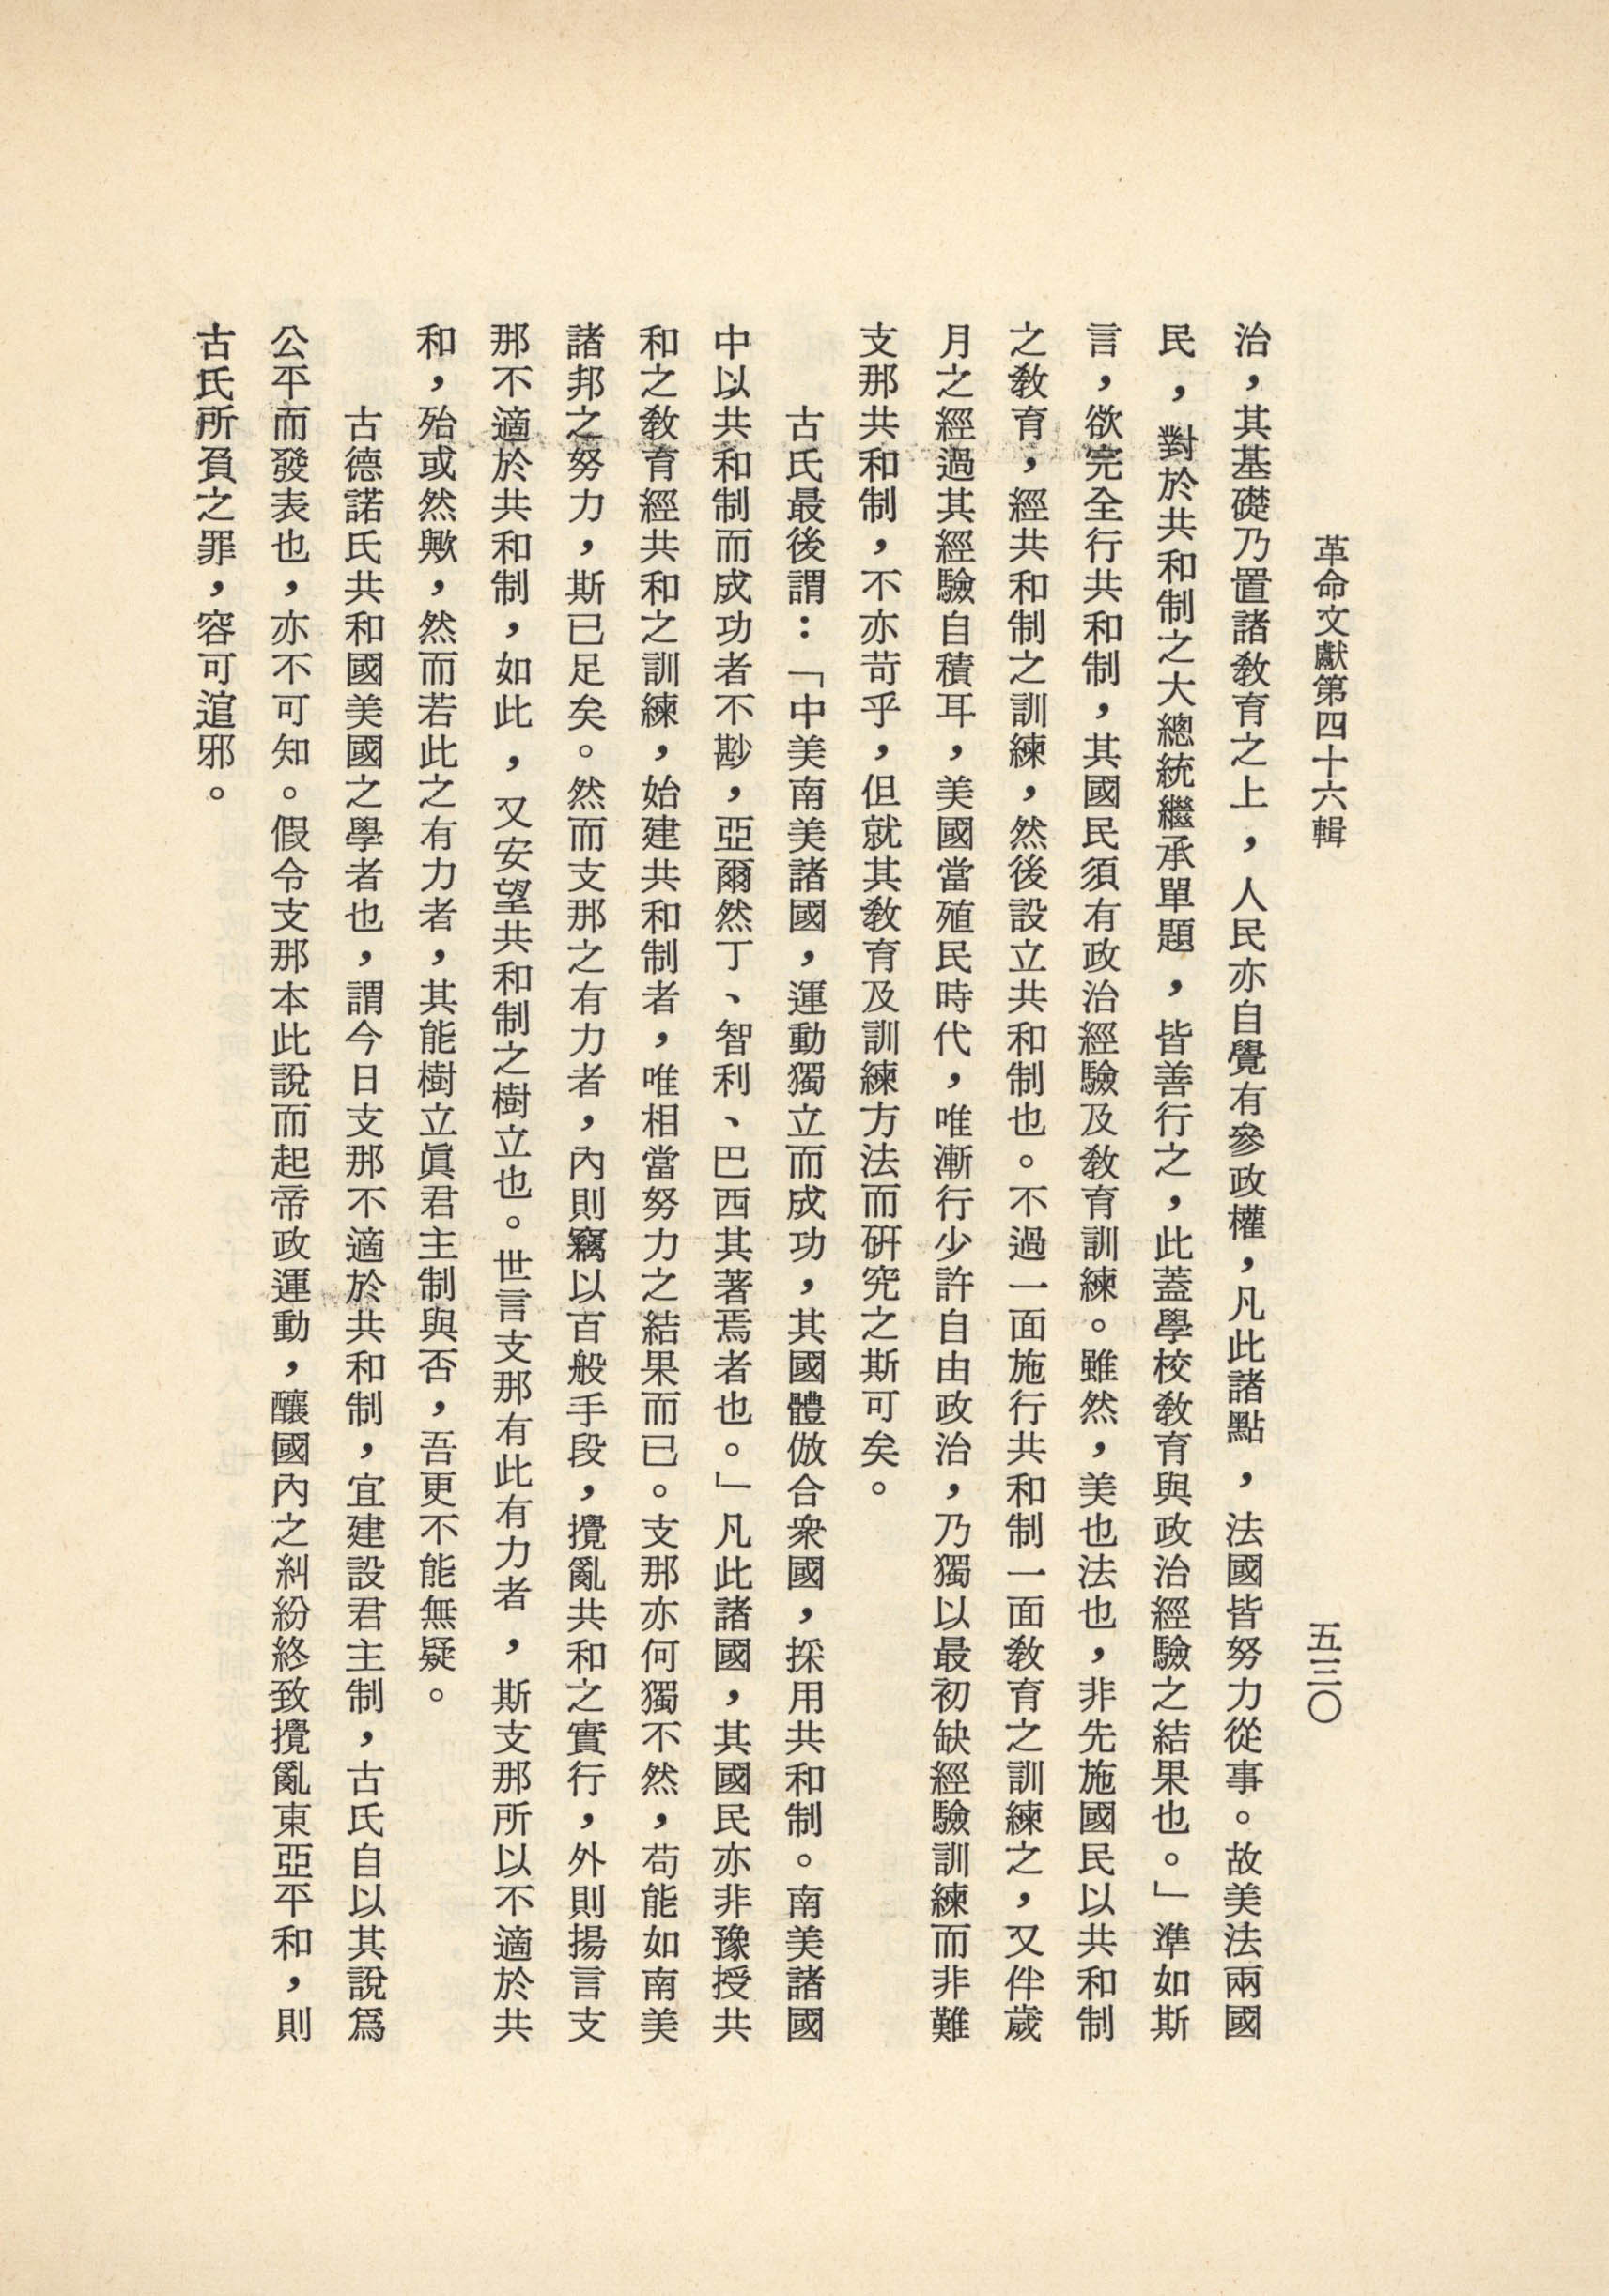 革命文獻第四十六輯
五三〇
治，其基礎乃置諸敎育之上，人民亦自覺有參政權，凡此諸點，法國皆努力從事。故美法兩國
民，對於共和制之大總統繼承單題，皆善行之，此蓋學校敎育與政治經驗之結果也。」準如斯
言，欲完全行共和制，其國民須有政治經驗及敎育訓練。雖然，美也法也，非先施國民以共和制
之敎育，經共和制之訓練，然後設立共和制也。不過一面施行共和制一面敎育之訓練之，又伴歲
月之經過其經驗自積耳，美國當殖民時代，唯漸行少許自由政治，乃獨以最初缺經驗訓練而非難
支那共和制，不亦苛乎，但就其敎育及訓練方法而硏究之斯可矣。
古氏最後謂：「中美南美諸國，運動獨立而成功，其國體倣合衆國，採用共和制。南美諸國
中以共和制而成功者不尠，亞爾然丁、智利、巴西其著焉者也。」凡此諸國，其國民亦非豫授共
和之敎育經共和之訓練，始建共和制者，唯相當努力之結果而已。支那亦何獨不然，苟能如南美
諸邦之努力，斯已足矣。然而支那之有力者，內則竊以百般手段，攪亂共和之實行，外則揚言支
那不適於共和制，如此，又安望共和制之樹立也。世言支那有此有力者，斯支那所以不適於共
和，殆或然歟，然而若此之有力者，其能樹立眞君主制與否，吾更不能無疑。
古德諾氏共和國美國之學者也，謂今日支那不適於共和制，宜建設君主制，古氏自以其說爲
公平而發表也，亦不可知。假令支那本此說而起帝政運動，釀國內之糾紛終致攪亂東亞平和，則
古氏所負之罪，容可逭邪。